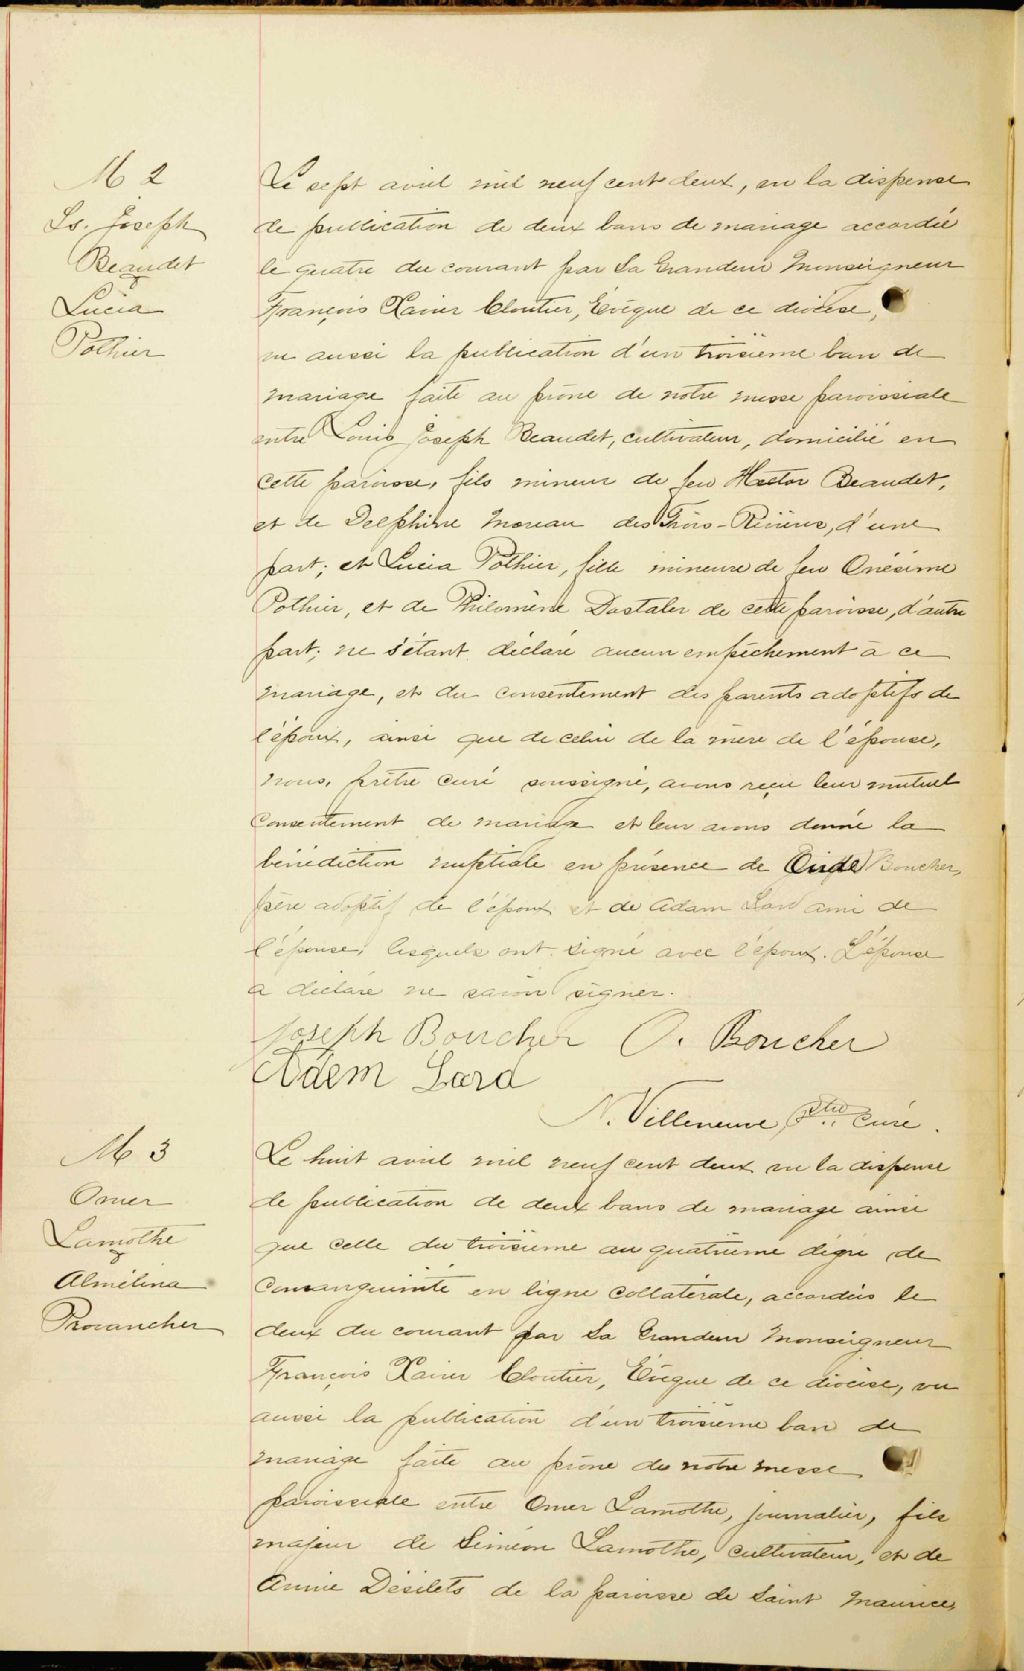 M 2
Ls. Joseph
Beaudet
&
Lucia
Pothier
Le sept avril mil neuf cent deux, vu la dispense
de publication de deux bans de mariage accordée
le quatre du courant par Sa Grandeur Monseigneur
François Xavier Cloutier, Évêque de ce diocèse,
vu aussi la publication d'un troisième ban de
mariage faite au prône de notre messe paroissiale
entre Louis Joseph Beaudet, cultivateur, domicilié en
cette paroisse, fils mineur de feu Hector Beaudet,
et de Delphine Moreau des Trois-Rivières, d'une
part; et Lucia Pothier, fille mineure de feu Onésime
Pothier, et de Philomène Dostaler de cette paroisse, d'autre
part; ne s'étant déclaré aucun empêchement à ce
mariage, et du consentement des parents adoptifs de
l'époux, ainsi que de celui de la mère de l'épouse,
nous, prêtre curé soussigné, avons reçu leur mutuel
consentement de mariage et leur avons donné la
bénédiction nuptiale en présence de Boucher,
père adoptif de l'époux et de Adam Lord ami de
l'épouse, lesquels ont signé avec l'époux. L'épouse
a déclaré ne savoir signer.
Joseph Boucher O. Boucher
Adem Lord
N. Villeneuve, Ptre curé.
M 3
Omer
Lamothe
&
Almélina
Provancher
Le huit avril mil neuf cent deux vu la dispense
de publication de deux bans de mariage ainsi
que celle du troisième au quatrième dégré de
Consanguinité en ligne collatérale, accordées le
deux du courant par Sa Grandeur Monseigneur
François Xavier Cloutier, Évêque de ce diocèse, vu
aussi la publication d'un troisième ban de
mariage faite au prône de notre messe
paroissiale entre Omer Lamothe, journalier, fils
majeur de Siméon Lamothe, cultivateur, et de
Annie Désilets de la paroisse de Saint Maurice,